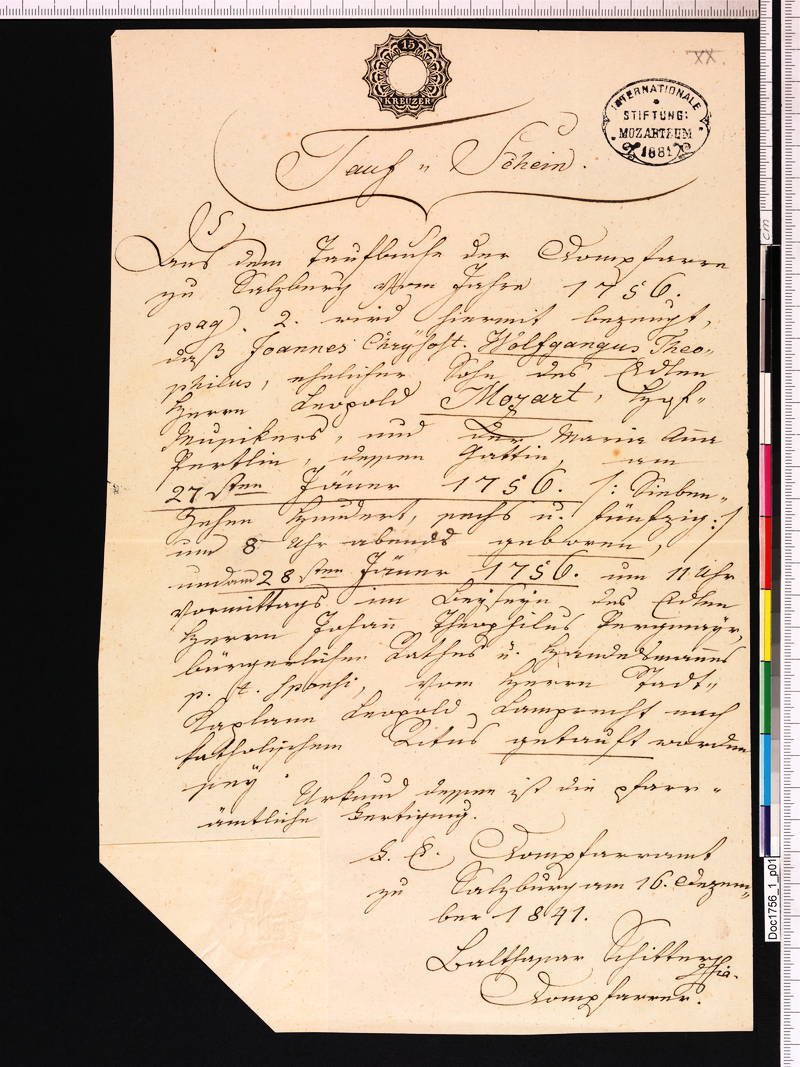 15
KREUZER
XX.
INTERNATIONALE
STIFTUNG:
MOZARTEUM
1881
Tauf„Schein.
Aus dem Taufbuche der Dompfarre
zu Salzburg vom Jahre 1756.
pag. 2. wird hiermit bezeugt,
daß Joannes Chrysost. Wolfgangus Theo„
philus, ehelicher Sohn des Edlen
Herrn Leopold Mozart, Hof„
Musikers, und der Maria Anna
Pertlin, dessen Gattin, am
27sten Jäner 1756. /: Sieben„
zehen Hundert, sechs u. fünfzig:/
um 8 Uhr abends geboren,
und am 28sten Jäner 1756. um 11 Uhr
Vormittags im Beyseyn des Edlen
Herrn Johann Theophilus Pergmayr,
bürgerlichen Rathes u. Handelsmannes
p. t. Sponsi, vom Herrn Stadt„
Kaplane Leopold Lamprecht nach
katholischem Ritus getauft worden
sey.
Urkund dessen ist die pfarr„
ämtliche Fertigung.
K. K. Dompfarramt
zu Salzburg am 16. Dezem„
ber 1841.
Balthasar Schitter
Dompfarrer.
cm
Doc1756_1_p01